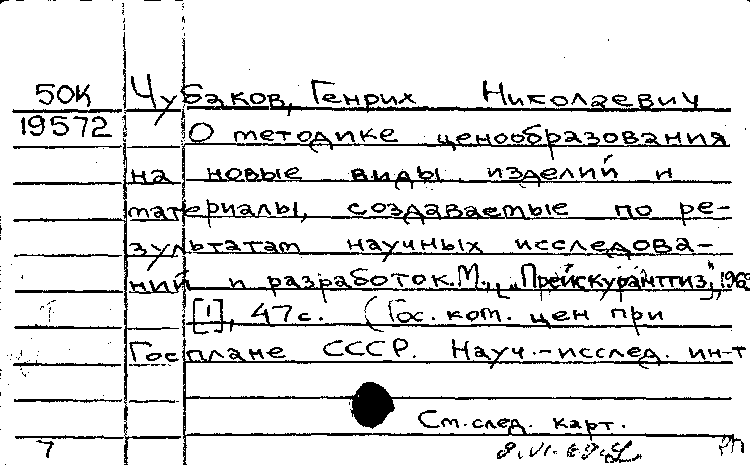 50К Чубаков, Генрих Николаевич
19572 О методике ценообразования
на новые виды изделий и
материалы, создаваемые по ре-
зультатам научных исследова-
ний и разработок. М., ["Прейскурантгиз"],
[1], 47 с. (Гос. ком. цен при
Госплане СССР. Науч.-исслед. ин-т
См. след. карт.
7